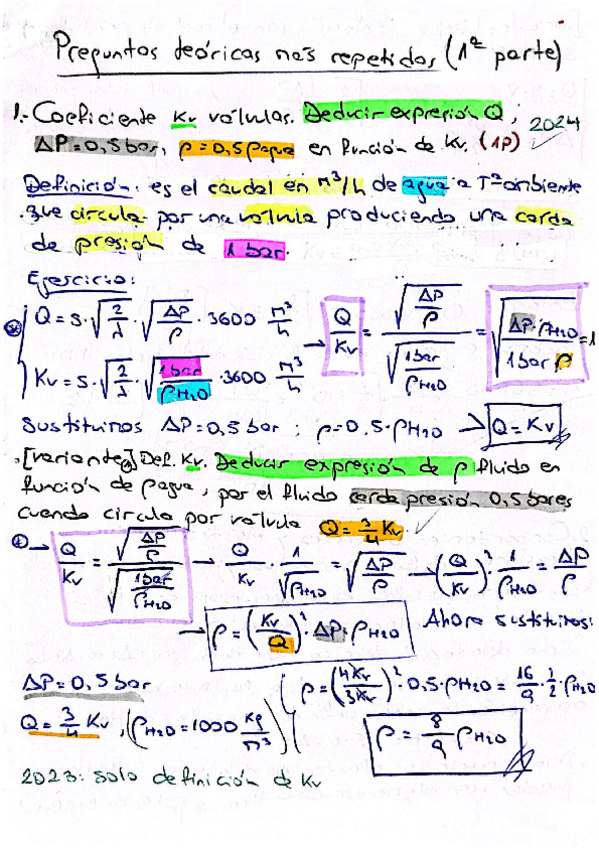 Preguntas teóricas más repetidas (1ª parte)
1.- Coeficiente Kv válvulas. Deducir expresión Q ; 2024
ΔP=0,5 bar, ρ=0,5 ρagua en función de Kv. (1P)
Definición: es el caudal en m³/h de agua a Tª ambiente
que circula por una válvula produciendo una caída
de presión de 1 bar.
Ejercicio:
Q = S·√(2/λ)·√(ΔP/ρ)·3600 m³/h → Q/Kv = √(ΔP/ρ)/√(1bar/ρH2O) = √(ΔP·ρH2O/1bar ρ) = 1
Kv = S·√(2/λ)·√(1bar/ρH2O)·3600 m³/h
Sustituimos ΔP=0,5 bar ; ρ=0.5·ρH2O → Q=Kv
[variante] Def. Kv. Deducir expresión de ρ fluido en
función de ρagua, por el fluido caída presión 0,5 bares
cuando circula por válvula Q=3/4 Kv
→ Q/Kv = √(ΔP/ρ)/√(1bar/ρH2O) → Q/Kv · 1/√ρH2O = √(ΔP/ρ) → (Q/Kv)²·1/ρH2O = ΔP/ρ
→ ρ=(Kv/Q)²·ΔP·ρH2O Ahora sustituimos:
ΔP=0,5 bar
Q=3/4 Kv, (ρH2O=1000 kg/m³)
ρ=(4Kv/3Kv)²·0,5·ρH2O = 16/9·1/2·ρH2O
ρ=8/9 ρH2O
2023: solo definición de Kv